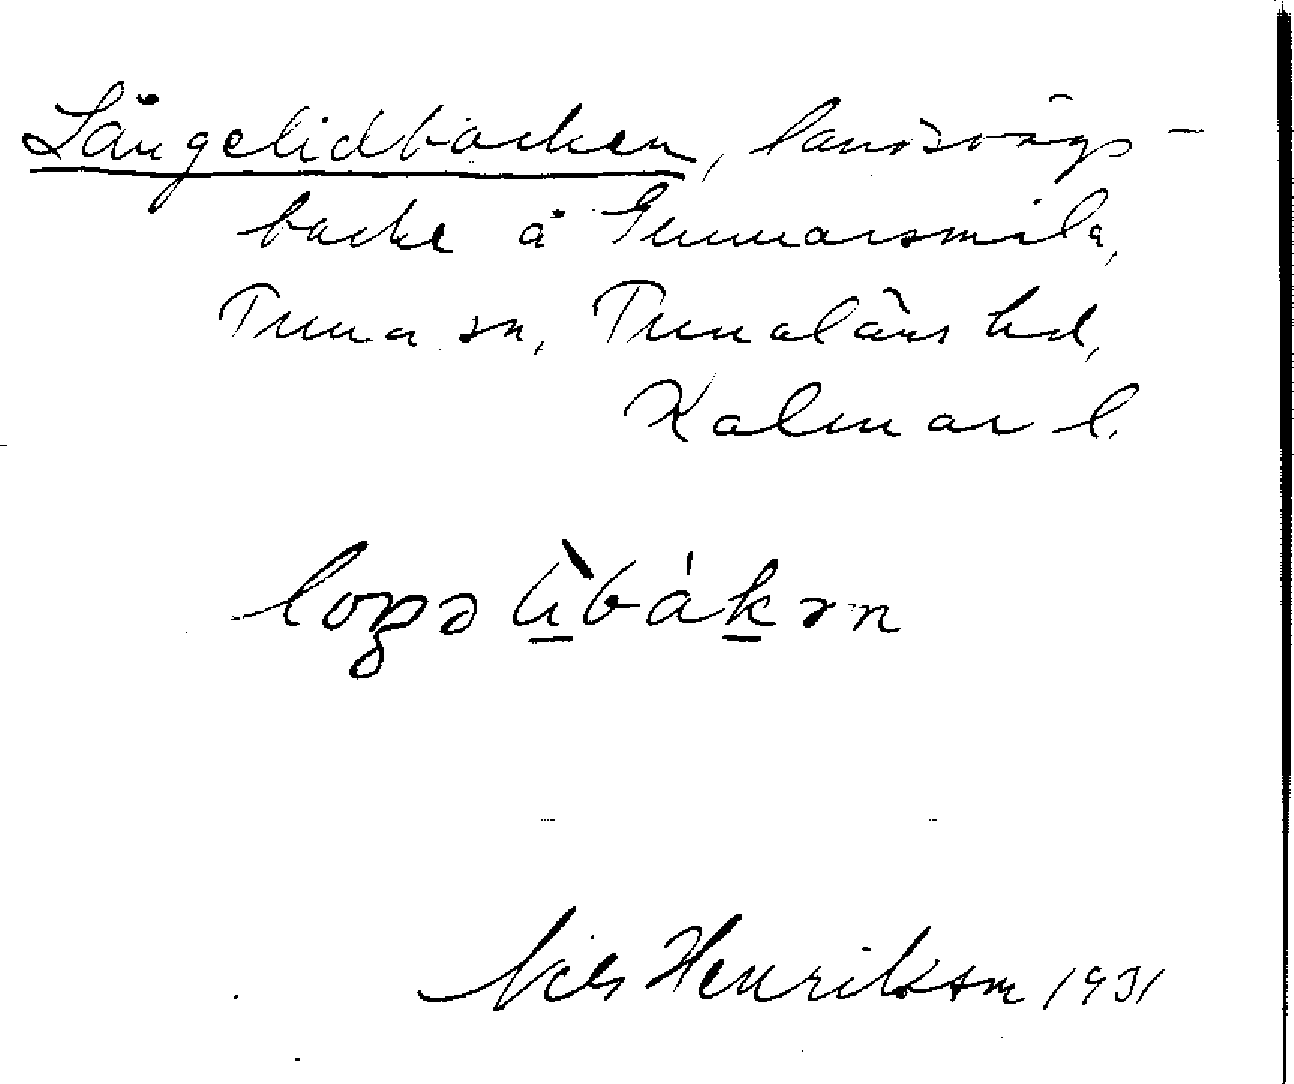 Långelidbacken, landsvägs-
backe å Gunnarsmåla,
Tuna sn, Tunaläns hd,
Kalmar l.
Nils Henriksson 1931